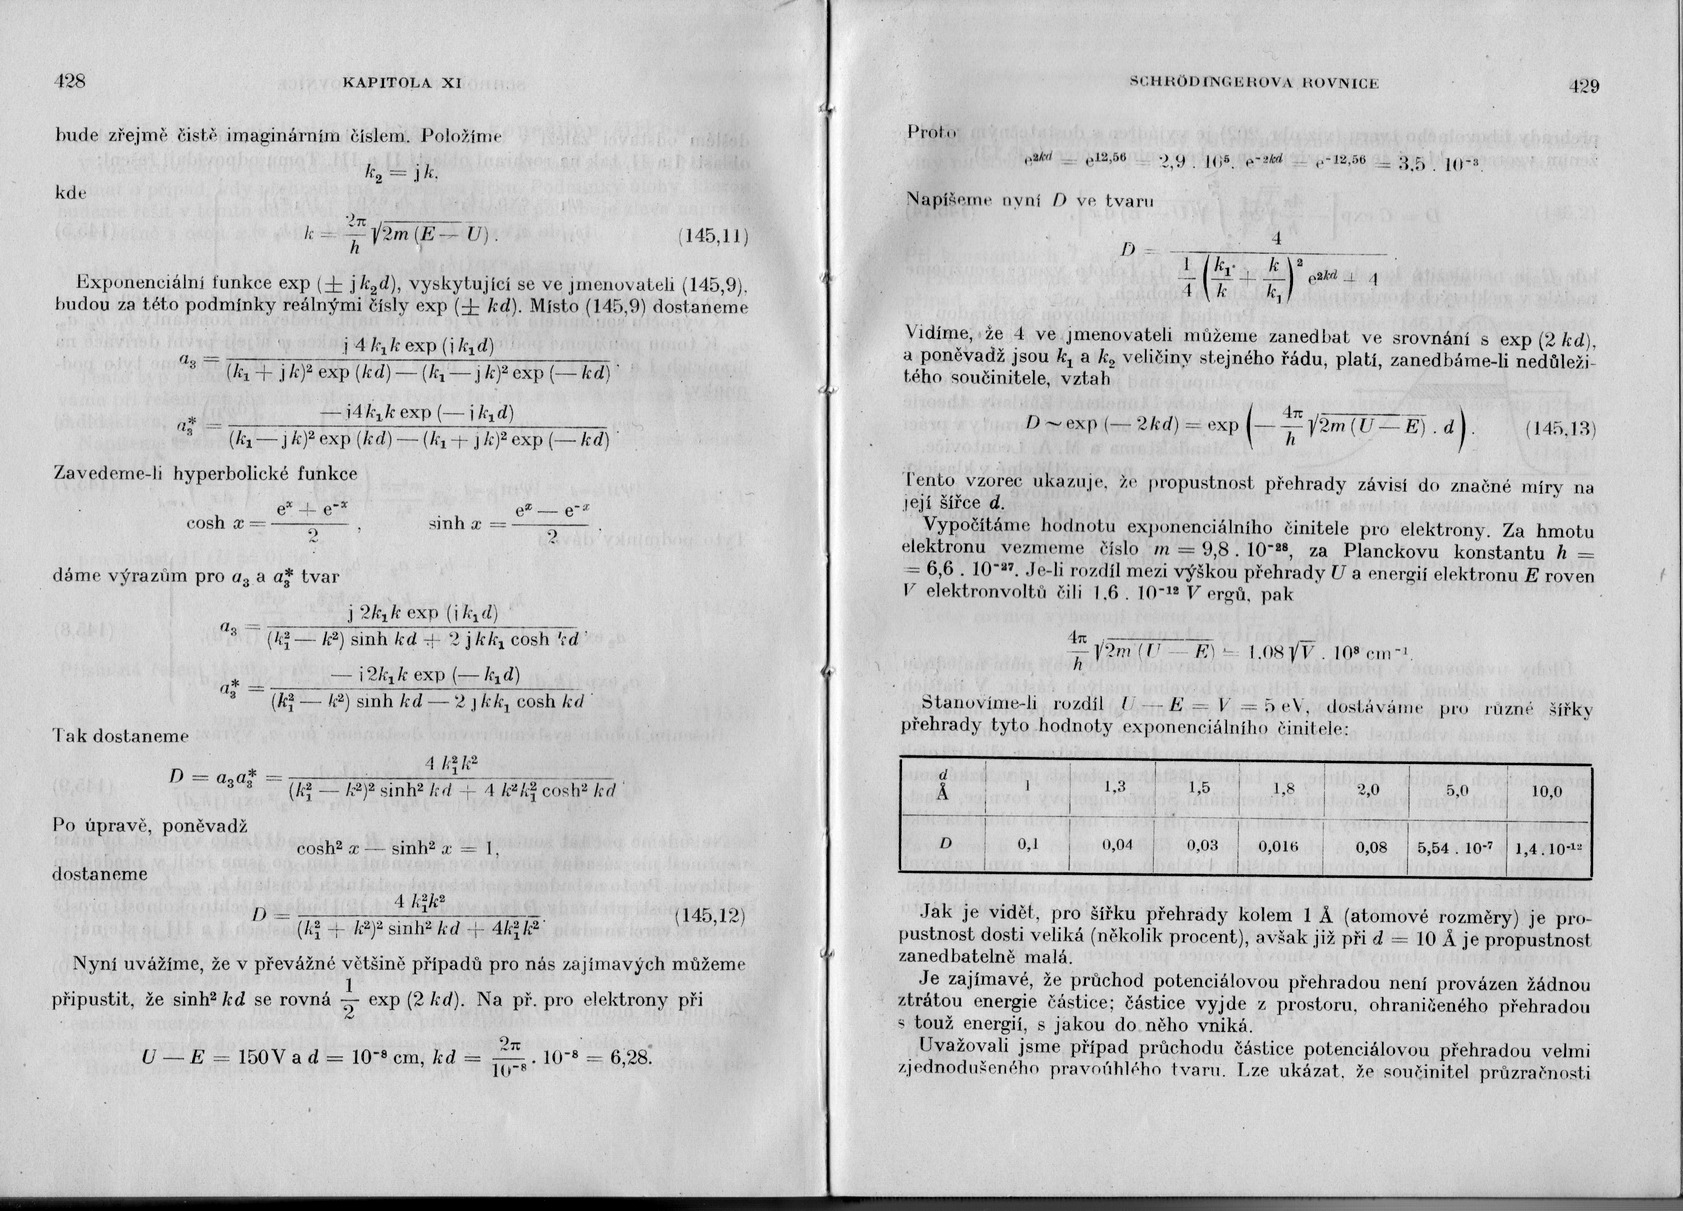 428
KAPITOLA XI
bude zřejmě čistě imaginárním číslem. Položíme
k₂ = jk,
kde
k = 2π/h √2m (E — U) . (145,11)
Exponenciální funkce exp (± jk₂d), vyskytující se ve jmenovateli (145,9),
budou za této podmínky reálnými čísly exp (± kd). Místo (145,9) dostaneme
a₃ = j 4 k₁k exp (jk₁d) / (k₁ + jk)² exp (kd) — (k₁ — jk)² exp (— kd) .
a₃* = — j4k₁k exp (— jk₁d) / (k₁ — jk)² exp (kd) — (k₁ + jk)² exp (— kd) .
Zavedeme-li hyperbolické funkce
cosh x = eˣ + e⁻ˣ / 2 , sinh x = eˣ — e⁻ˣ / 2 .
dáme výrazům pro a₃ a a₃* tvar
a₃ = j 2k₁k exp (jk₁d) / (k₁² — k²) sinh kd + 2 jkk₁ cosh kd .
a₃* = — j2k₁k exp (— k₁d) / (k₁² — k²) sinh kd — 2 jkk₁ cosh kd .
Tak dostaneme
D = a₃a₃* = 4 k₁²k² / (k₁² — k²)² sinh² kd + 4 k²k₁² cosh² kd .
Po úpravě, poněvadž
cosh² x — sinh² x = 1,
dostaneme
D = 4 k₁²k² / (k₁² + k²)² sinh² kd + 4k₁²k² . (145,12)
Nyní uvážíme, že v převážné většině případů pro nás zajímavých můžeme
připustit, že sinh² kd se rovná 1/2 exp (2 kd). Na př. pro elektrony při
U — E = 150V a d = 10⁻⁸ cm, kd = 2π/10⁻⁸ . 10⁻⁸ = 6,28.
SCHRÖDINGEROVA ROVNICE
429
Proto
e²ᵏᵈ = e¹²,⁵⁶ = 2,9 . 10⁵, e⁻²ᵏᵈ = e⁻¹²,⁵⁶ = 3,5 . 10⁻³.
Napíšeme nyní D ve tvaru
D = 4 / 1/4 (k₁/k + k/k₁)² e²ᵏᵈ + 4
Vidíme, že 4 ve jmenovateli můžeme zanedbat ve srovnání s exp (2 kd),
a poněvadž jsou k₁ a k₂ veličiny stejného řádu, platí, zanedbáme-li nedůleži-
tého součinitele, vztah
D ~ exp (— 2kd) = exp (— 4π/h √2m (U — E) . d) . (145,13)
Tento vzorec ukazuje, že propustnost přehrady závisí do značné míry na
její šířce d.
Vypočítáme hodnotu exponenciálního činitele pro elektrony. Za hmotu
elektronu vezmeme číslo m = 9,8 . 10⁻²⁸, za Planckovu konstantu h =
= 6,6 . 10⁻²⁷. Je-li rozdíl mezi výškou přehrady U a energií elektronu E roven
V elektronvoltů čili 1,6 . 10⁻¹² V ergů, pak
4π/h √2m (U — E) = 1,08 √V . 10⁸ cm⁻¹.
Stanovíme-li rozdíl U — E = V = 5 eV, dostáváme pro různé šířky
přehrady tyto hodnoty exponenciálního činitele:
d Å 1 1,3 1,5 1,8 2,0 5,0 10,0
D 0,1 0,04 0,03 0,016 0,08 5,54 . 10⁻⁷ 1,4 . 10⁻¹²
Jak je vidět, pro šířku přehrady kolem 1 Å (atomové rozměry) je pro-
pustnost dosti veliká (několik procent), avšak již při d = 10 Å je propustnost
zanedbatelně malá.
Je zajímavé, že průchod potenciálovou přehradou není provázen žádnou
ztrátou energie částice; částice vyjde z prostoru, ohraničeného přehradou
s touž energií, s jakou do něho vniká.
Uvažovali jsme případ průchodu částice potenciálovou přehradou velmi
zjednodušeného pravoúhlého tvaru. Lze ukázat, že součinitel průzračnosti